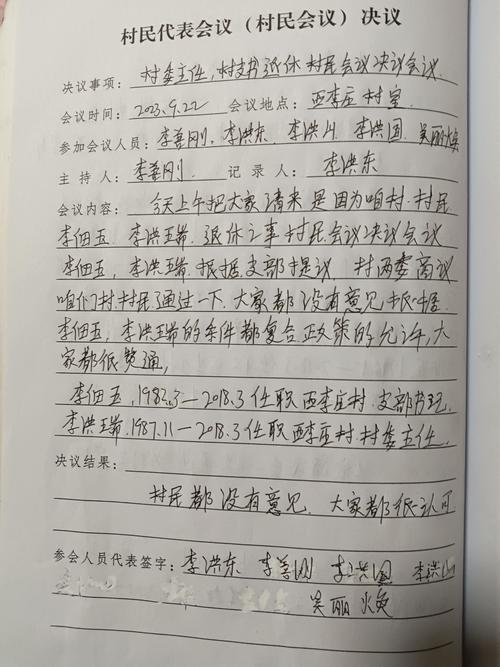 村民代表会议（村民会议）决议
决议事项：村委主任，村支书退休村民会议决议会议.
会议时间：2023.9.22 会议地点：西李庄村室
参加会议人员：李善刚、李洪东、李洪山、李洪国、吴丽焕
主持人：李善刚 记录人：李洪东
会议内容：今天上午把大家请来是因为咱村.村民
李佃五.李洪瑞.退休之事村民会议决议会议
李佃五，李洪瑞.根据支部提议，村两委商议
咱们村.村民通过一下.大家都没有意见.根据.
李佃五，李洪瑞的条件都复合正政策的允许,大
家都很赞通,
李佃五，1983.3—2018.3任职西李庄村.支部书记.
李洪瑞.1987.11—2018.3任职西李庄村村委主任.
决议结果：
村民都没有意见.大家都很认可
参会人员代表签字：李洪东 李善刚 李洪国 李洪山
吴丽焕